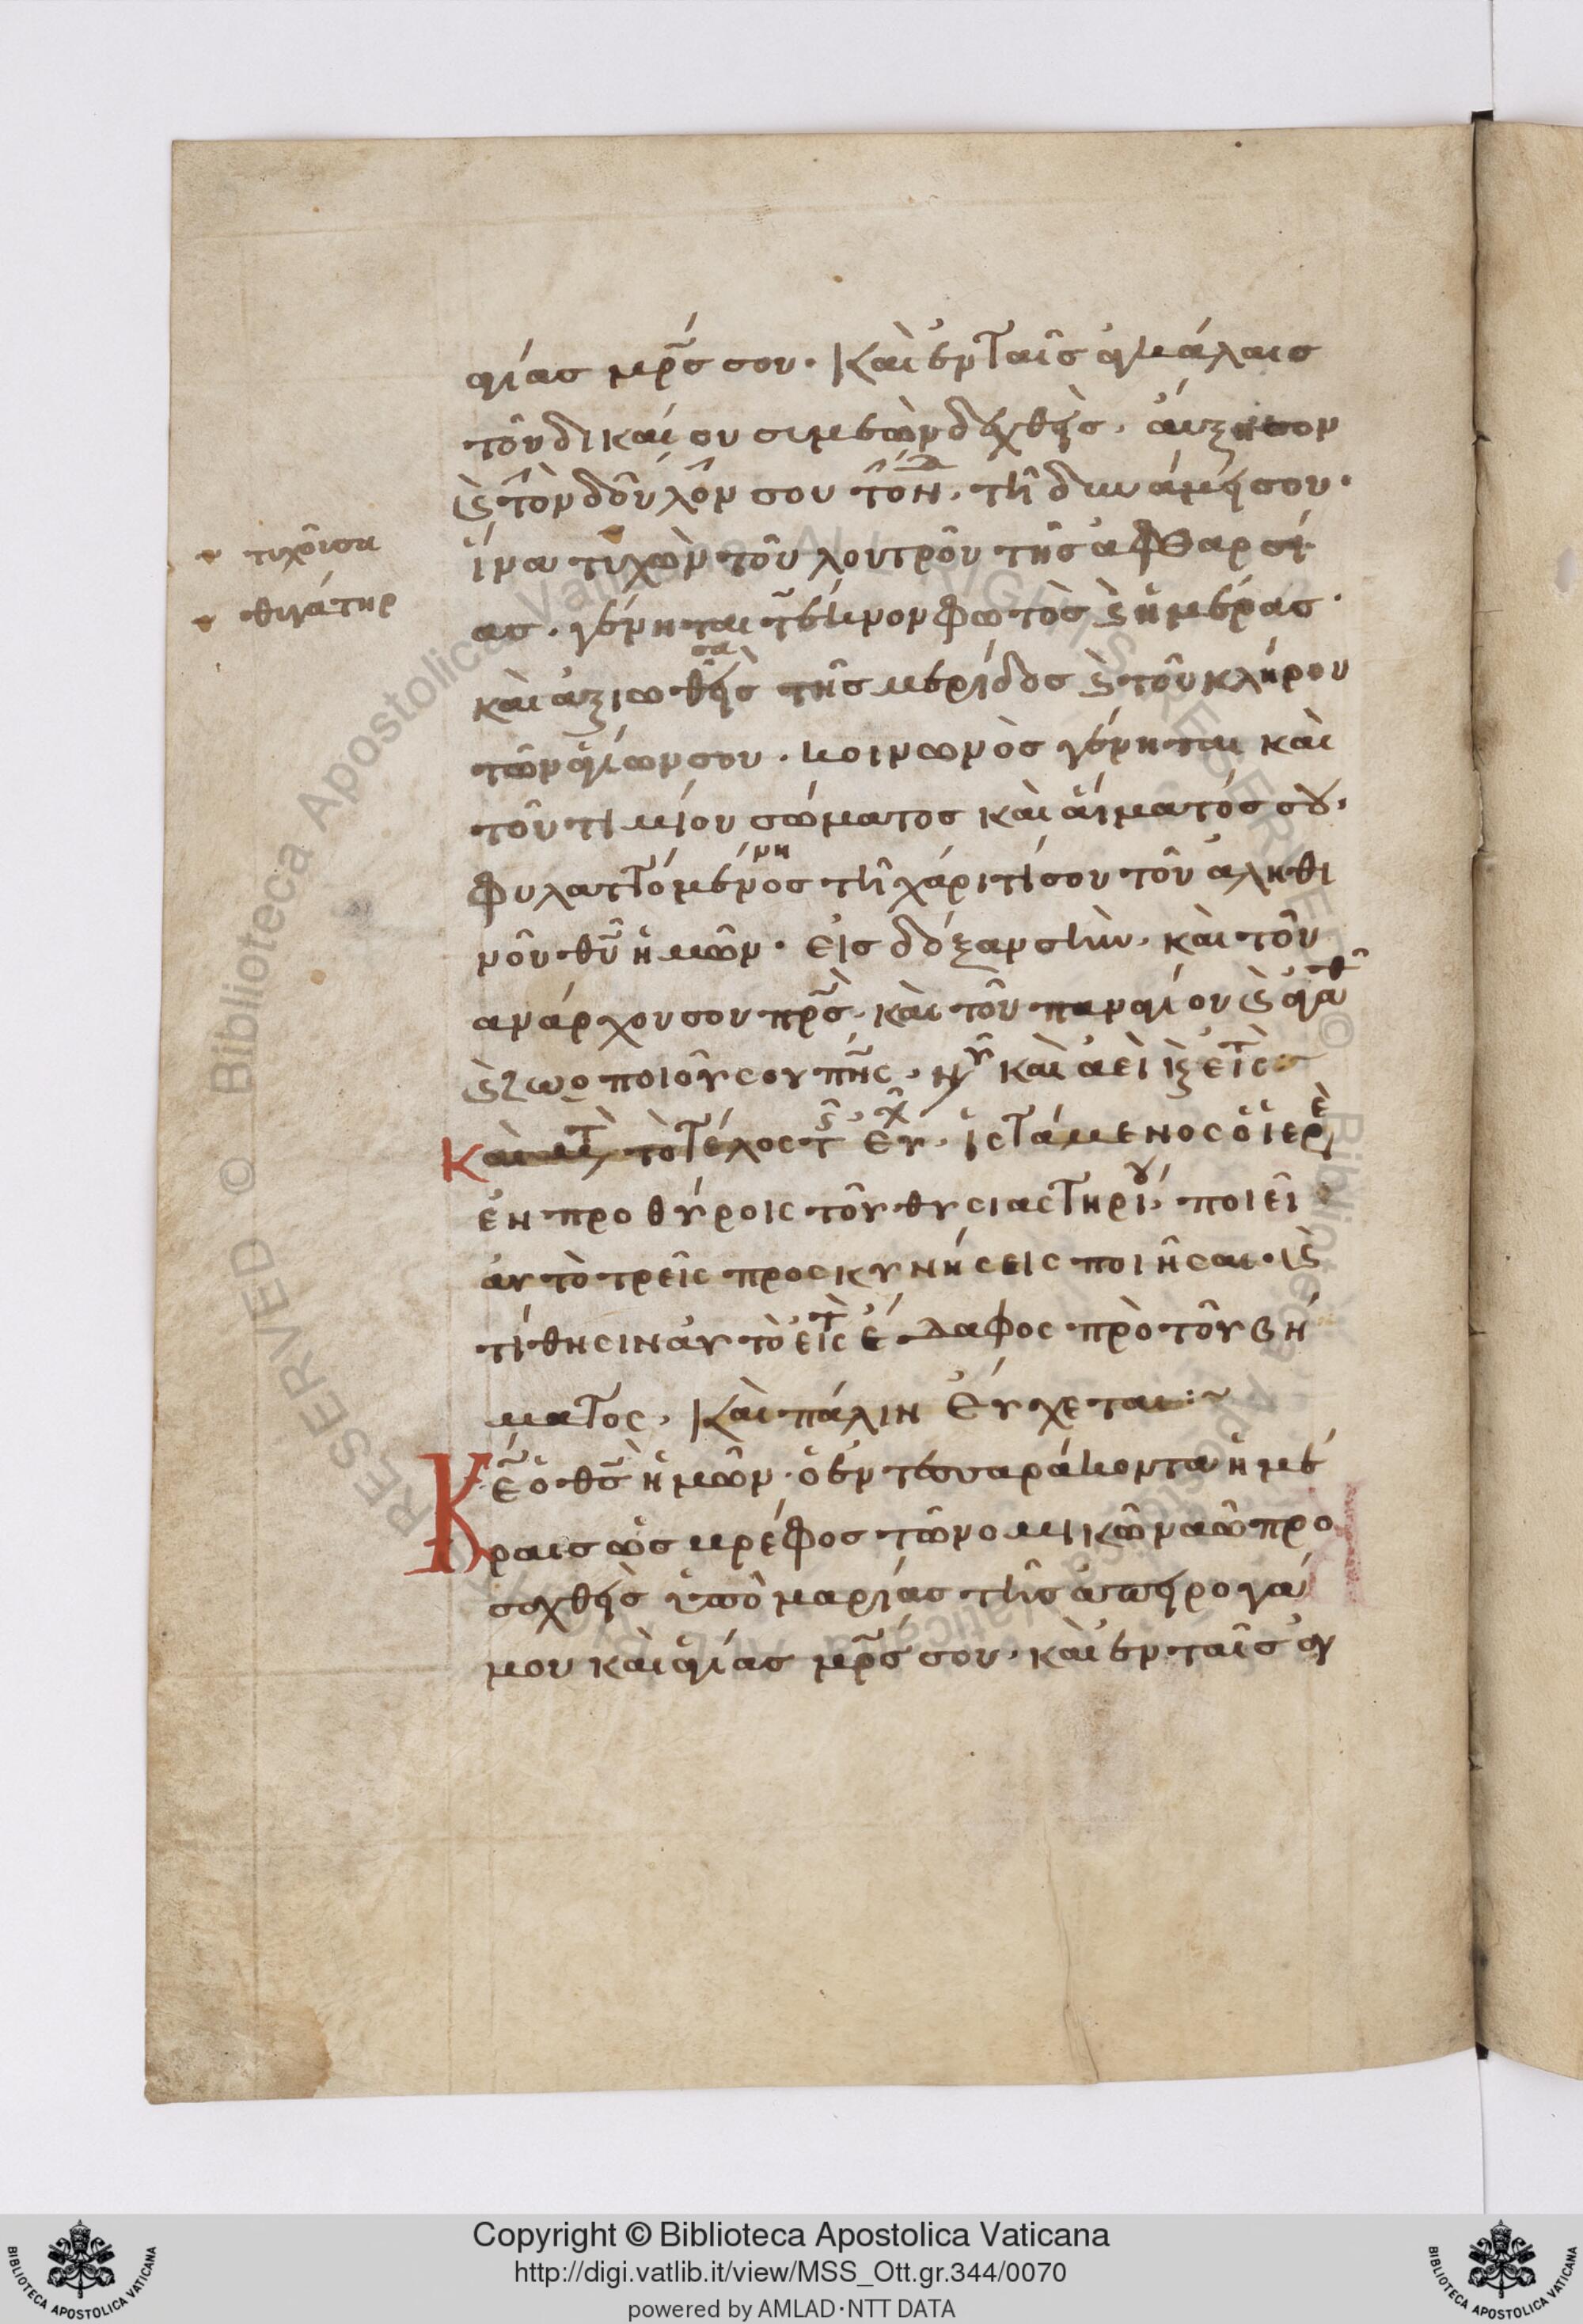 γίας μρ̅ς σου. Καὶ ἐν ταῖς ἀγκάλαις
τοῦ δικαίου συμεὼν δεχθεὶς. ἄυξησον
καὶ τὸν δοῦλόν σου τόνδ. τῆ δυνάμει σου.
ἵνα τυχὼν τοῦ λουτροῦ τῆς ἀφθαρσί
τυχοῦσα
ας. γένηται τέκνον φωτὸς καὶ ἡμέρας.
θυγάτηρ
σα
καὶ ἀξιωθεὶς τῆς μερίδος καὶ τοῦ κλήρου
τῶν ἁγίων σου. κοινωνὸς γένηται καὶ
τοῦ τιμίου σώματος καὶ αἵματός σου.
νη
φυλαττόμενος τῆ χάριτί σου τοῦ ἀληθι
νοῦ θυ̅ ἡμῶν. εἰς δόξαν σὴν. καὶ τοῦ
ἀνάρχου σου πρ̅ς. καὶ τοῦ παναγίου καὶ ἀγαθ
καὶ ζωοποιοῦ σου πν̅ς. νῦν καὶ ἀεὶ καὶ εἰς τ
Καὶ μετ τὸ τέλος τ εὐχ. ἱστάμενος ὁ ἱερε
ἐν προθύροις τοῦ θυσιαστηρίου. ποιεῖ
αὐτὸ τρεῖς προσκυνήσεις ποιῆσαι. καὶ
τίθησιν αὐτὸ εἰς τ ἔδαφος πρὸ τοῦ βή
ματος. Καὶ πάλιν ἐύχεται:~
Κε̅ ὁ θς̅ ἡμῶν. ὁ ἐν τεσσαράκοντα ἡμέ
ραις ὡς βρέφος τῶ νομικῶ ναῶ προ
σαχθεὶς ὑπὸ μαρίας τῆς ἀπειρογά
μου καὶ ἁγίας μρ̅ς σου. καὶ ἐν ταῖς ἀγ
RESERVED © Biblioteca Apostolica Vaticana ALL RIGHTS RESERVED © Biblioteca Apostolica Vaticana ALL RIGHTS
Copyright © Biblioteca Apostolica Vaticana
http://digi.vatlib.it/view/MSS_Ott.gr.344/0070
powered by AMLAD·NTT DATA
BIBLIOTECA APOSTOLICA VATICANA
BIBLIOTECA APOSTOLICA VATICANA